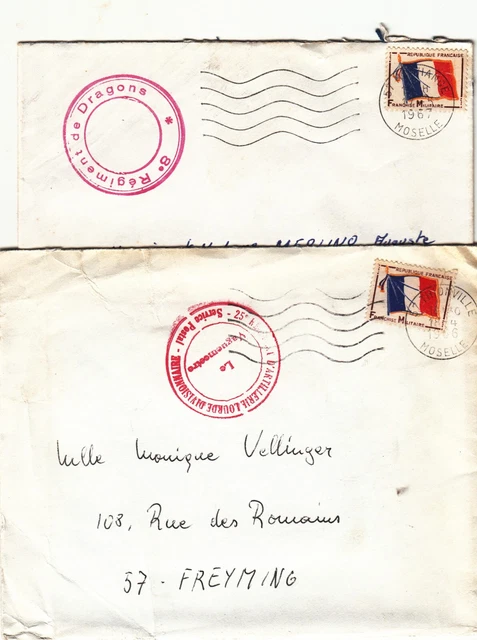 8e Régiment de Dragons *
RÉPUBLIQUE FRANÇAISE
FRANCHISE MILITAIRE
1967
MOSELLE
MERLINO Auguste
RÉPUBLIQUE FRANÇAISE
FRANCHISE MILITAIRE
THIONVILLE
MOSELLE
D'ARTILLERIE LOURDE DIVISIONNAIRE
Service Postal - 25e
Le
Vaguemestre
Mlle Monique Vellinger
103, Rue des Romains
57 - FREYMING